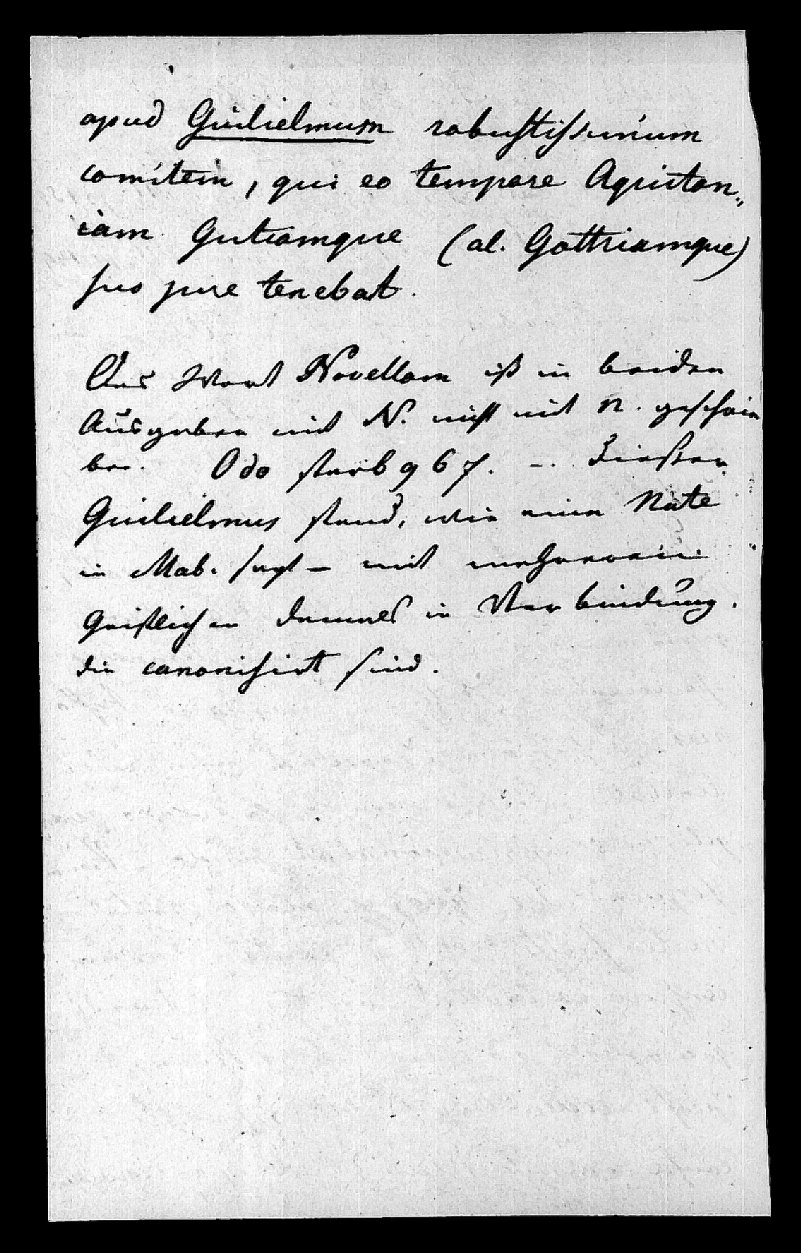 apud Guilielmum robustissimum
comitem, qui eo tempore Aquitan„
iam Gutiamque (al. Gothiamque)
suo jure tenebat.
Das Wort Novellam ist in beiden
Ausgaben mit N. nicht mit n. geschrie
ben. Odo starb 967. – Dieser
Guilielmus stand, wie eine Note
in Mab. sagt – mit mehreren
Geistlichen damals in Verbindung.
die canonisirt sind.